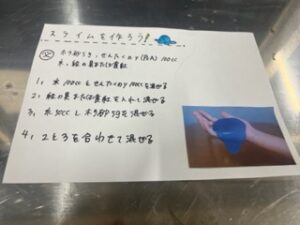 スライムを作ろう!
ホウ砂5g、せんたくのり(PVA)100cc
水、絵の具または食紅
1、水100ccとせんたくのり100ccを混ぜる
2、絵の具または食紅を入れて混ぜる
3、水50ccとホウ砂5gを混ぜる
4、2と3を合わせて混ぜる